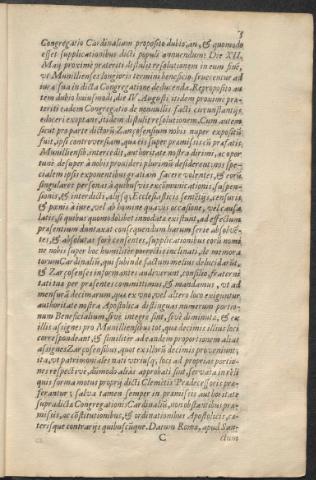 3
Congregatio Cardinalium proposito dubio, an, & quomodo
esset supplicationibus dicti populi annuendum? Die XII.
Maij proximè præteriti distulit resolutionem in eum finẽ,
vt Munillienses longioris termini beneficio fruerentur ad
iura sua in dicta Congregatione deducenda. Reproposito au
tem dubio huiusmodi, die IV. Augusti itidem proximè præ-
teriti eadem Congregatio de nonnullis facti circunstantijs
edoceri exoptans, itidem distulit resolutionem. Cum autem
sicut pro parte dictorũ Zarçosensium nobis nuper expositũ
fuit, ipsi controversiam, quæ eis super præmissis cũ præfatis
Munilliensib. intercedit, authoritate nostra dirimi, ac oportu
nè desuper à nobis provideri plurimũ desiderent: nos spe-
cialem ipsis exponentibus gratiam facere volentes, & eorũ
singulares personas à quibusvis excõmunicationis, suspen-
sionis, & interdicti, alijsq; Ecclesiasticis sentẽtijs, censuris,
& pœnis à iure, vel ab homine quavis occasione, vel causa
latis, si quibus quomodolibet innodatæ existunt, ad effectum
præsentium dumtaxat consequendum harum serie absolvẽ-
tes, & absolutas fore censentes, supplicationibus eorũ nomi
ne nobis super hoc humiliter porrectis inclinati, de memora
torum Cardinaliũ, qui subinde factum mel​ius deducid​arũt,
& Zarçosenses informantes audiverunt, consilio, fraterni
tati tuæ per præsentes committimus, & mandamus, vt ad
mensurã decimarum, quæ ex vno, vel altero loco exiguntur,
authoritate nostra Apostolica distinguas numerum portio-
num Beneficialium, sivè integræ sint, sivè diminutæ, & ex
illis assignes pro Munilliensibus tot, quæ decimis illius loci
correspondeant, & similiter ad eandem proportionem alias
assignes Zarçosensibus, quot ex illorũ decimis proveniunt;
ita, vt patrimoniales nati vtriusq; loci ad proprias portio-
nes respectivè, dummodo aliàs approbati sint, servata in reli
quis forma motus proprij dicti Clemẽtis Prædecessoris præ-
ferantur; salva tamen semper in præmissis authoritate
supradictæ Congregationis Cardinaliũ, non obstantibus præ-
missis, ac cõstitutionibus, & ordinationibus Apostolicis, cæ-
terisque contrarijs quibuscũque. Datum Romæ, apud San-
C ctam